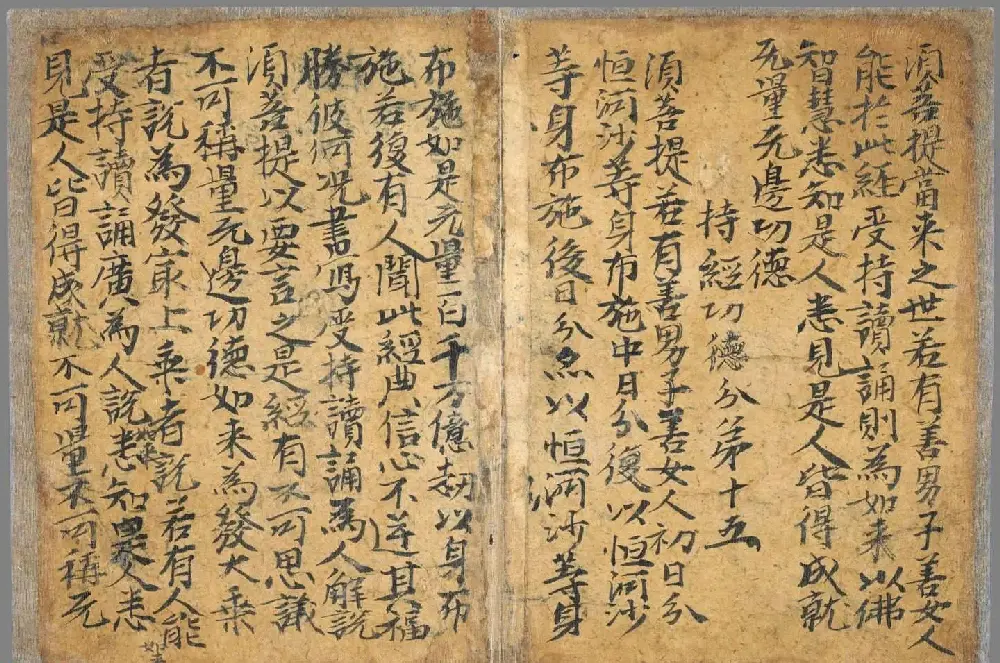 湏菩提當来之世若有善男子善女人
能於此經受持讀誦則為如来以佛
智慧悉知是人悉見是人皆得成就
无量无邊功德
持經功德分第十五
湏菩提若有善男子善女人初日分
恒河沙等身布施中日分復以恒河沙
等身布施後日分亦以恒河沙等身
布施如是无量百千万億劫以身布
施若復有人聞此經典信心不逆其福
勝彼何况書寫受持讀誦為人解説
湏菩提以要言之是經有不可思議
不可稱量无邊功德如来為發大乘
者説為發㝡上乘者説若有人能
受持讀誦廣為人説如来悉知是人悉
見是人皆得成就不可量不可稱无